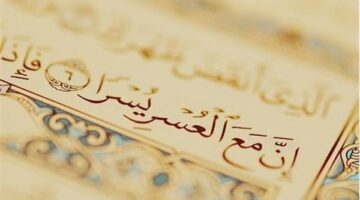 الَّذِي أَنقَضَ ظَهْرَكَ
إِنَّ مَعَ الْعُسْرِ يُسْرًا ۝٦ فَإِذَا